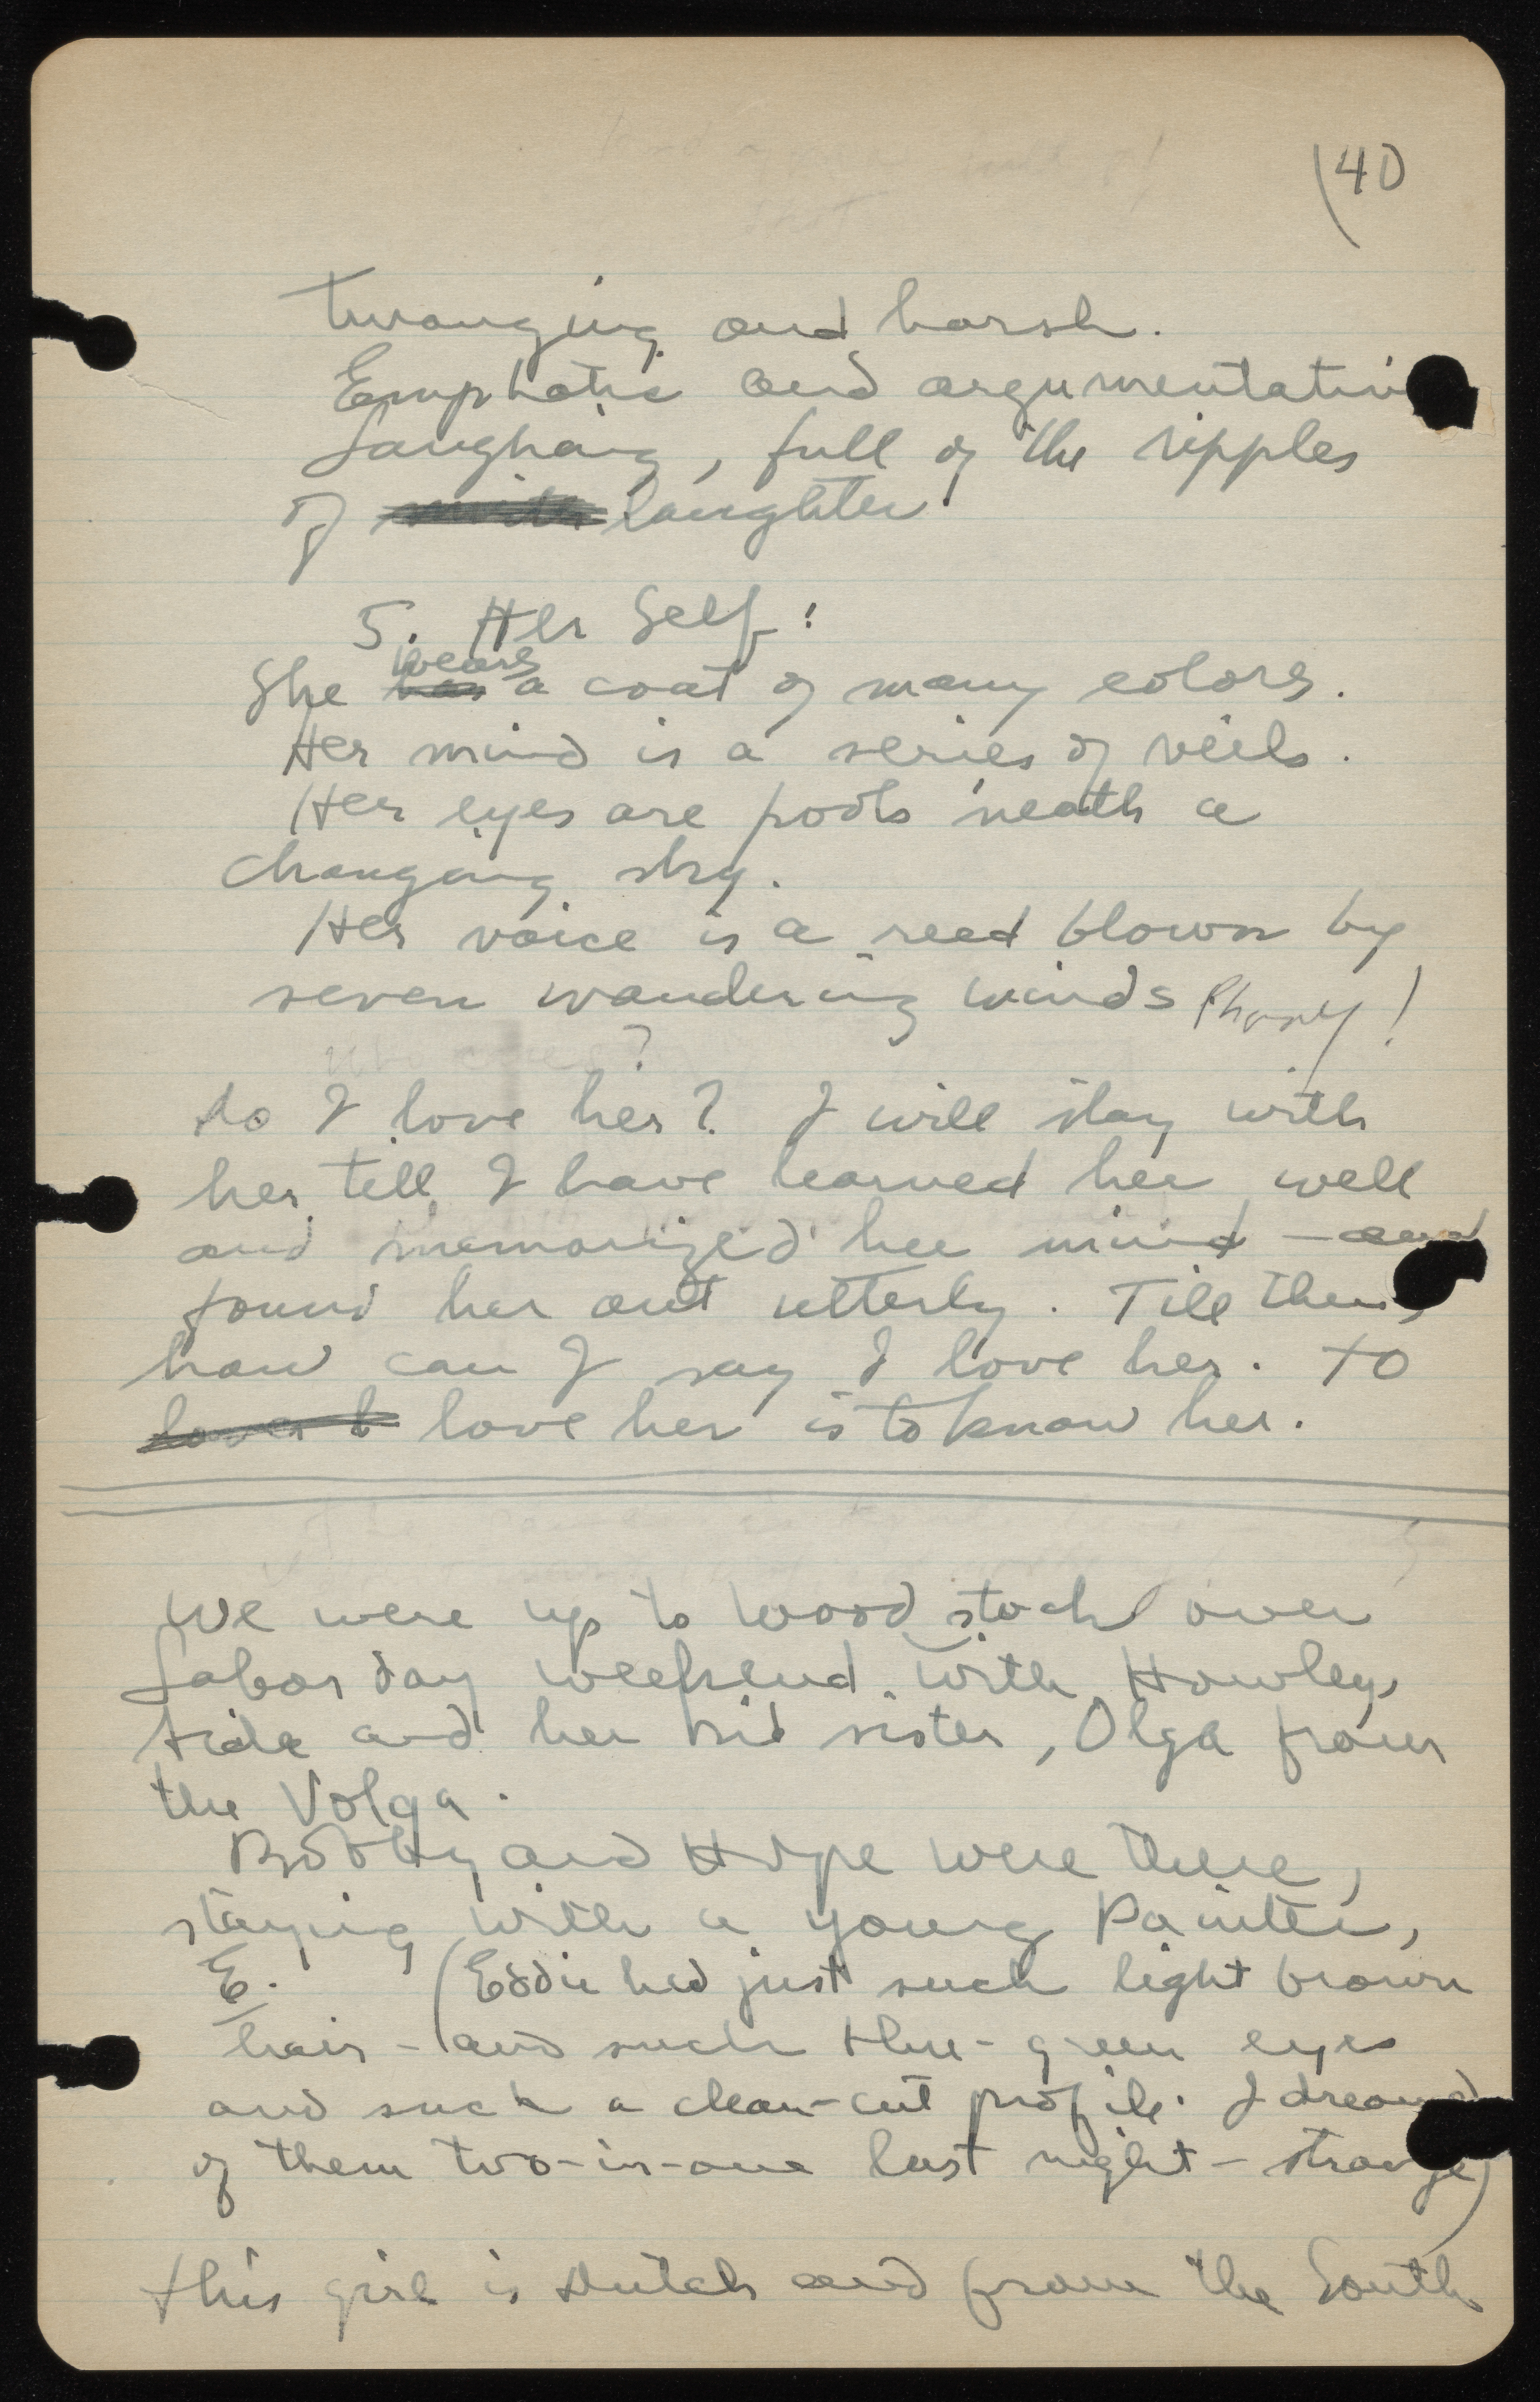 40
Twanging and harsh.
Emphatic and argumentativ
Laughing, full of the ripples
of laughter
5. Her Self:
wears
She has a coat of many colors.
Her mind is a series of veils.
Her eyes are pools 'neath a
changing sky.
Her voice is a reed blown by
seven wandering winds Phony!
?
do I love her? I will stay with
her till I have learned her well
and memorized her mind — and
found her out utterly. Till then,
how can I say I love her. To
love her is to know her.
We were up to Woodstock over
Labor day weekend with Howley,
and her kid sister, Olga from
the Volga.
Bobby and Hope were there,
staying with a young Painter,
E. (Eddie had just such light brown
hair - and such blue-green eyes
and such a clean-cut profile. I dreamed
of them two-in-one last night - strange)
This girl is Dutch and from the South